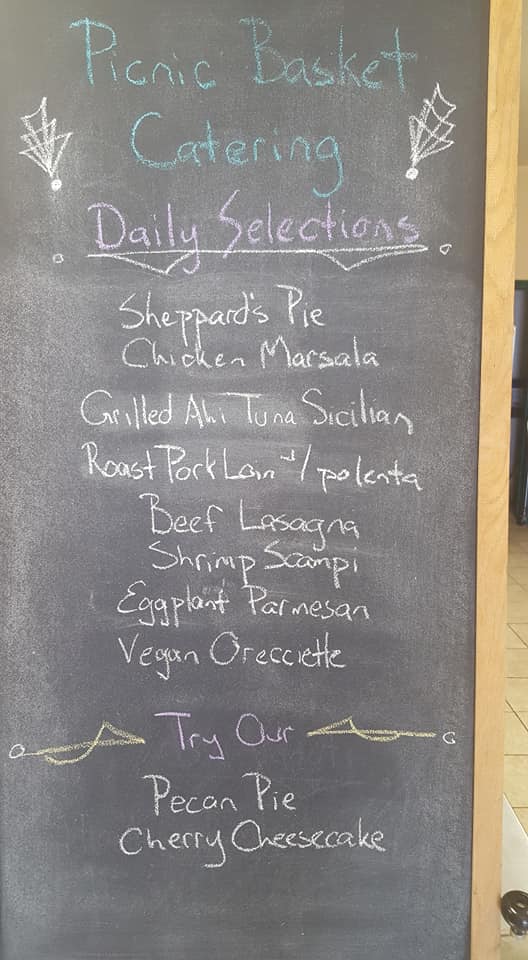 Picnic Basket
Catering
Daily Selections
Sheppard's Pie
Chicken Marsala
Grilled Ahi Tuna Sicilian
Roast Pork Loin w/ polenta
Beef Lasagna
Shrimp Scampi
Eggplant Parmesan
Vegan Orecciette
Try Our
Pecan Pie
Cherry Cheesecake